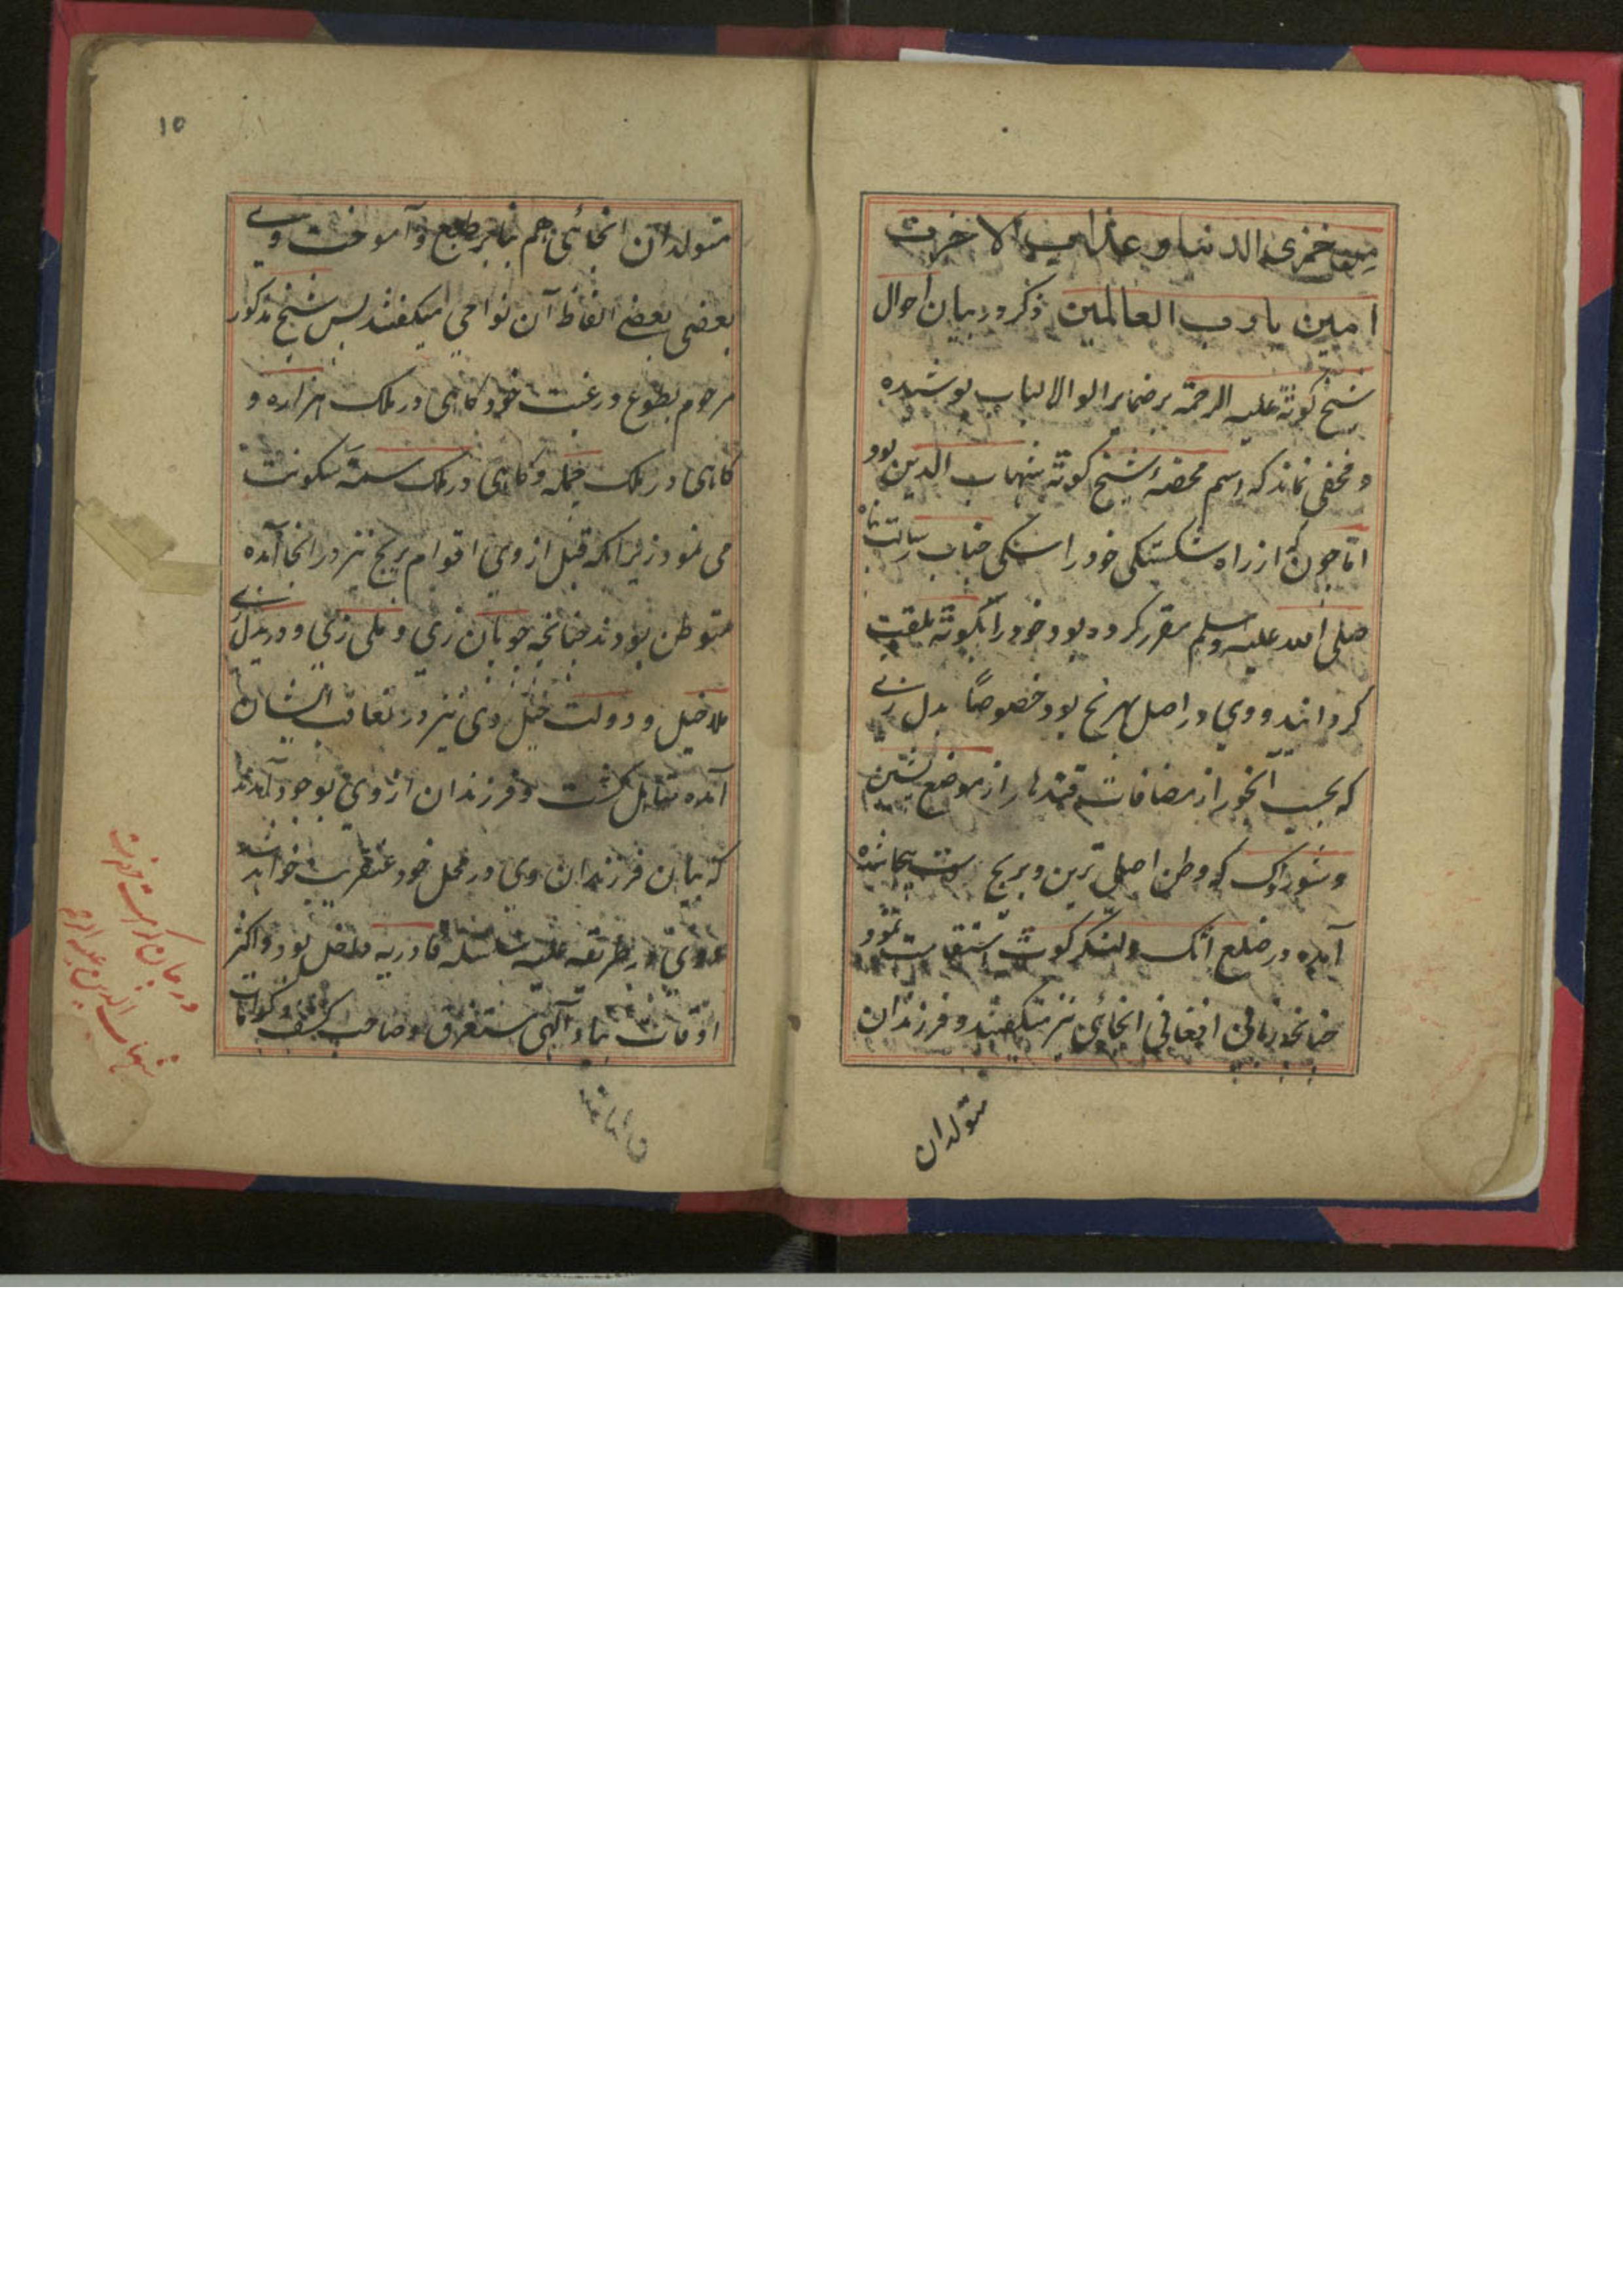 من خزی الدنیا و عذاب الاخرت
امین یا رب العالمین ذکر در بیان احوال
شیخ کوته علیه الرحمة بر ضمایر الو الالباب پوشیده
و مخفی نماند که اسم شیخ کوته شهاب الدین بود
اما چون از راه شکستگی خود را جناب رسالت
صلی الله علیه وسلم مقرر کرده بود خود را بکوته ملقب
کردانید و وی در اصل بود خصوصاً بدل زی
که بحسب آبخور از مضافات قندهار از موضع پشین
و شوراوک که وطن اصلی ترین و بریج
آمده در ضلع اتک و لنگرکوت استقامت نمود
چنانچه افغانی انجائی نیز میگفتند و فرزندان
متولدان
۱۵
متولدان انجائی هم بنابر طبع و آموخت وی
بعضی بعضی الفاظ آن نواحی میگفتند پس شیخ مذکور
مرحوم بطوع و رغبت خود کاهی در ملک هزاره و
کاهی در ملک و کاهی در ملک سمه سکونت
می نمود زیرا که قبل از وی اقوام بریچ نیز در انجا آمده
متوطن بودند چنانچه چوپان زی و علی زی و بدل زی
ملا خیل و دولت خیل وی نیز در تعاقب ایشان
آمده متاهل کشت و فرزندان از وی بوجود آمدند
که بیان فرزندان وی در محل خود عنقریب خواهد شد
و وی در طریقه علیه سلسله قادریه بود و اکثر
اوقات بیاد آلهی مستغرق و صاحب کشف و کرامات
در بیان
شهاب الدین علیه الرحمه